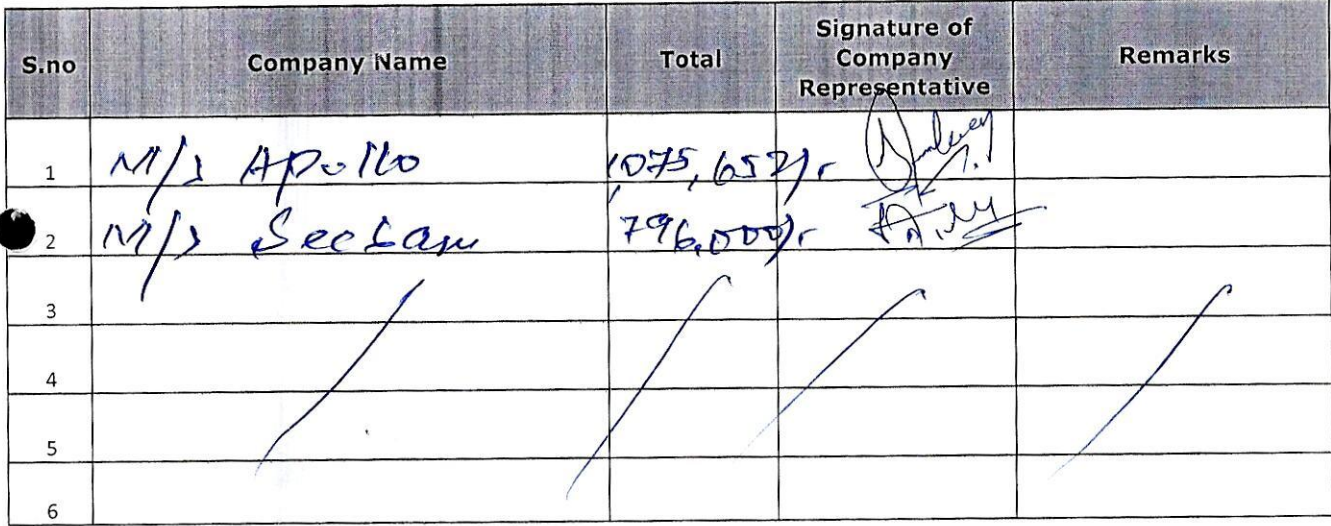 S.no Company Name Total Signature of Company Representative Remarks
1 M/s Apollo 1,075,652/-
2 M/s 796,000/-
3
4
5
6